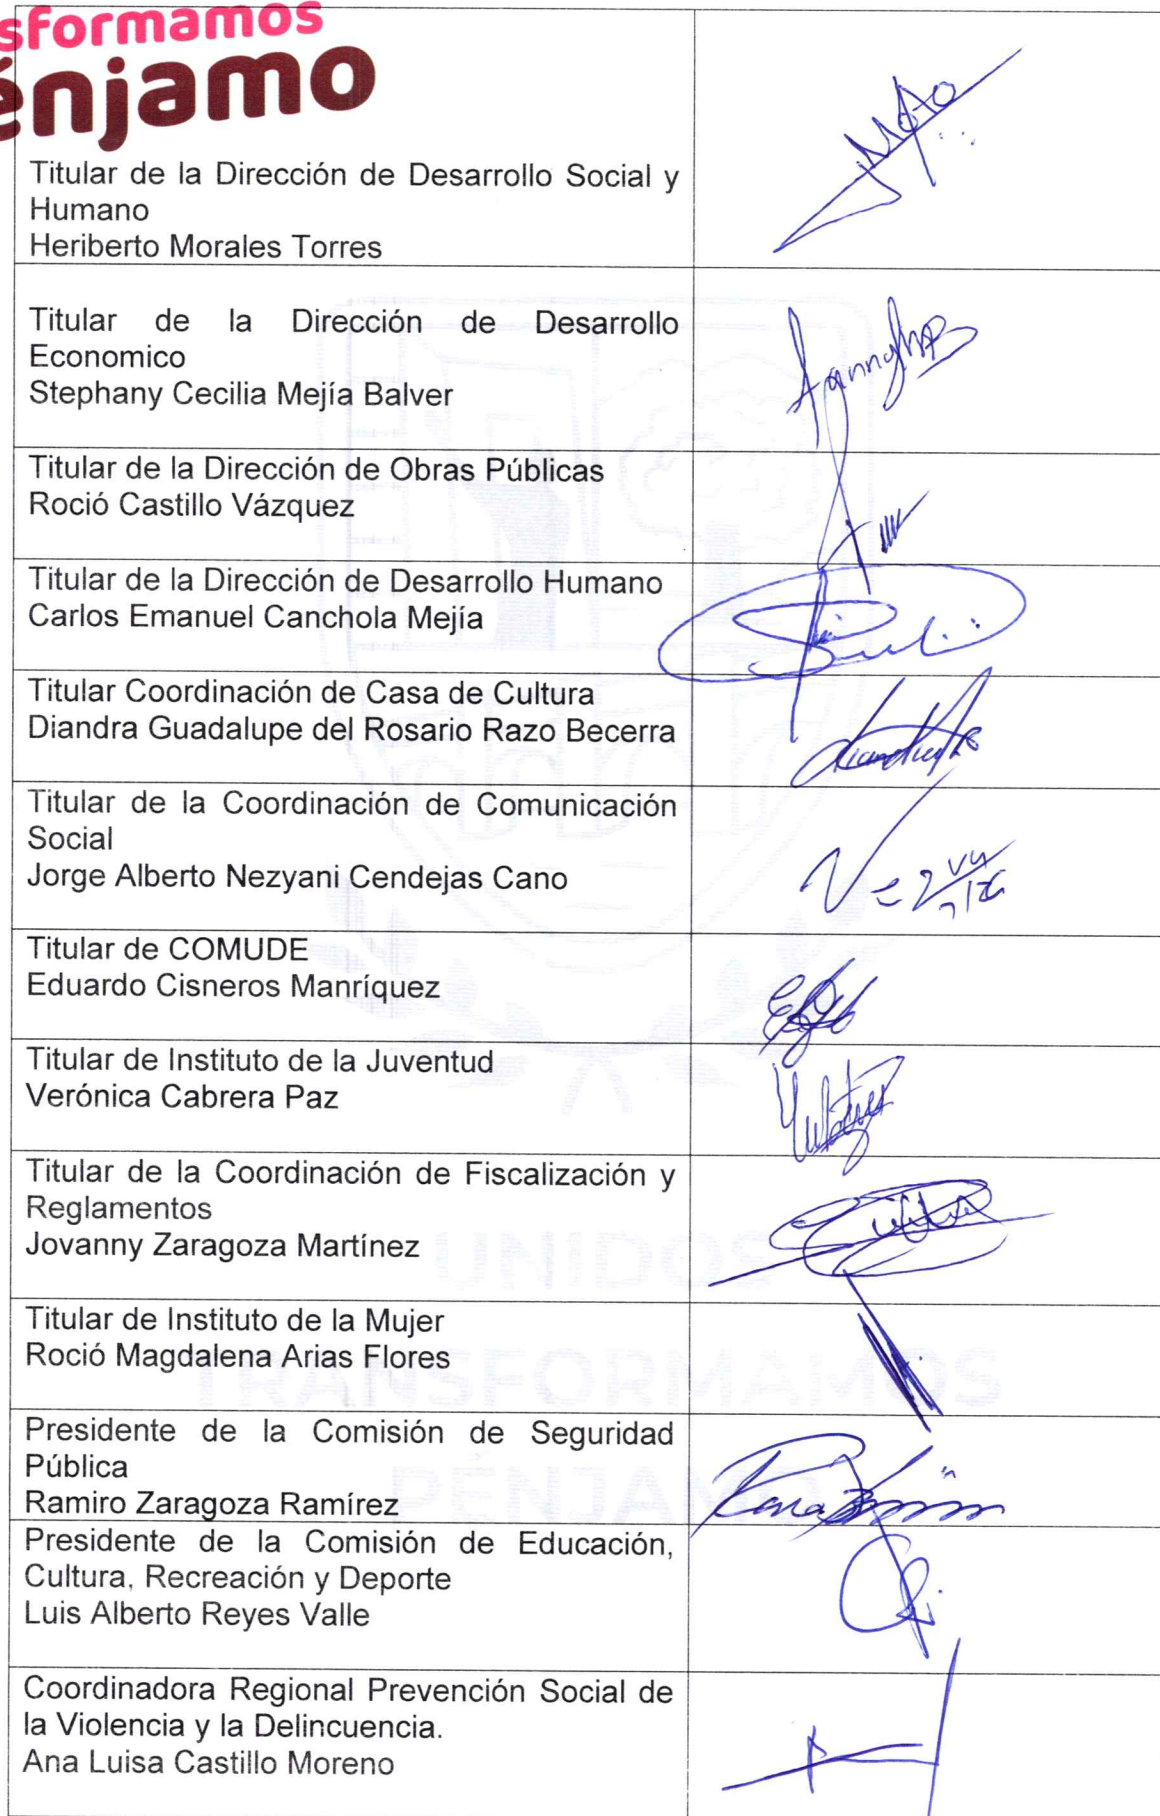 sformamos
énjamo
Titular de la Dirección de Desarrollo Social y
Humano
Heriberto Morales Torres
Titular de la Dirección de Desarrollo
Economico
Stephany Cecilia Mejía Balver
Titular de la Dirección de Obras Públicas
Roció Castillo Vázquez
Titular de la Dirección de Desarrollo Humano
Carlos Emanuel Canchola Mejía
Titular Coordinación de Casa de Cultura
Diandra Guadalupe del Rosario Razo Becerra
Titular de la Coordinación de Comunicación
Social
Jorge Alberto Nezyani Cendejas Cano
Titular de COMUDE
Eduardo Cisneros Manríquez
Titular de Instituto de la Juventud
Verónica Cabrera Paz
Titular de la Coordinación de Fiscalización y
Reglamentos
Jovanny Zaragoza Martínez
UNIDOS
Titular de Instituto de la Mujer
Roció Magdalena Arias Flores
TRANSFORMAMOS
Presidente de la Comisión de Seguridad
Pública
Ramiro Zaragoza Ramírez
PÉNJAMO
Presidente de la Comisión de Educación,
Cultura, Recreación y Deporte
Luis Alberto Reyes Valle
Coordinadora Regional Prevención Social de
la Violencia y la Delincuencia.
Ana Luisa Castillo Moreno